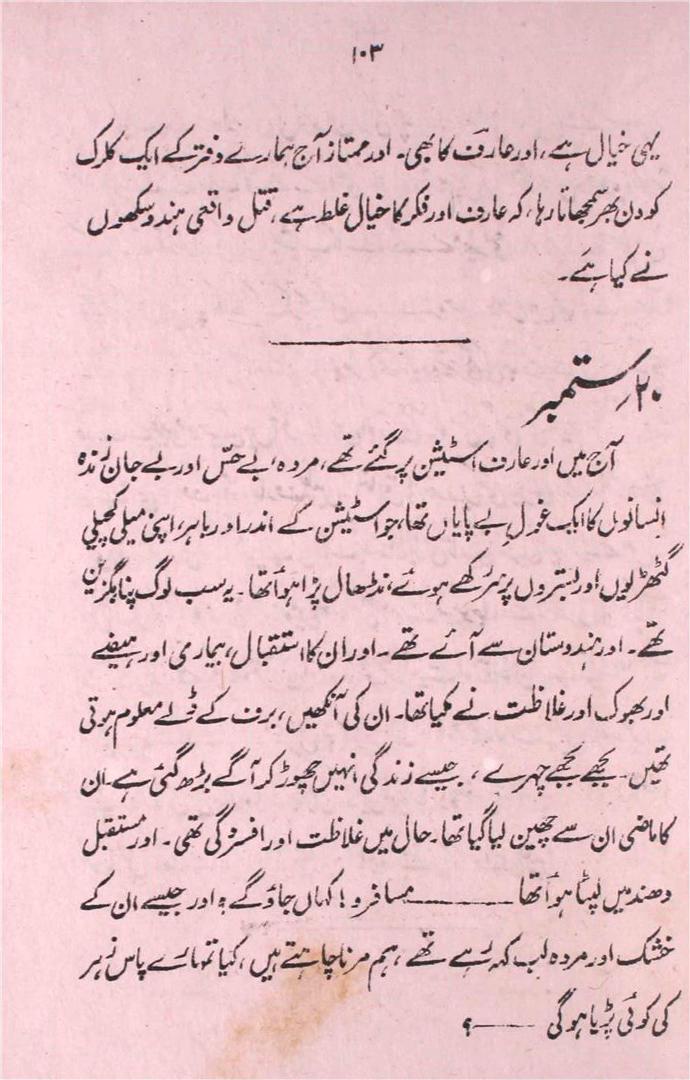 ۱۰۳
یہی خیال ہے، اور عارف کا بھی۔ اور ممتاز آج ہمارے دفتر کے ایک کلرک
کو دن بھر سمجھاتا رہا، کہ عارف اور فکر کا خیال غلط ہے، قتل واقعی ہندو سکھوں
نے کیا ہے۔
۲۰؍ ستمبر
آج میں اور عارف اسٹیشن پر گئے تھے، مردہ، بے حس اور بے جان زندہ
انسانوں کا ایک غول بے پایاں تھا، جو اسٹیشن کے اندر اور باہر، اپنی میلی کچیلی
گٹھڑیوں اور بستروں پر سر رکھے ہوئے، نڈھال پڑا ہوا تھا۔ یہ سب لوگ پناہ گزین
تھے۔ اور ہندوستان سے آئے تھے۔ اور ان کا استقبال، بیماری اور ہیضے
اور بھوک اور غلاظت نے کیا تھا۔ ان کی آنکھیں، برف کے ڈلے معلوم ہوتی
تھیں۔ بجھے بجھے چہرے، جیسے زندگی انہیں چھوڑ کر آگے بڑھ گئی ہے۔ ان
کا ماضی ان سے چھین لیا گیا تھا۔ حال میں غلاظت اور افسردگی تھی۔ اور مستقبل
دھند میں لپٹا ہوا تھا ـــــــــ مسافرو! کہاں جاؤ گے؟ اور جیسے ان کے
خشک اور مردہ لب کہہ رہے تھے، ہم مرنا چاہتے ہیں، کیا تمہارے پاس زہر
کی کوئی پڑیا ہوگی ــــــ؟